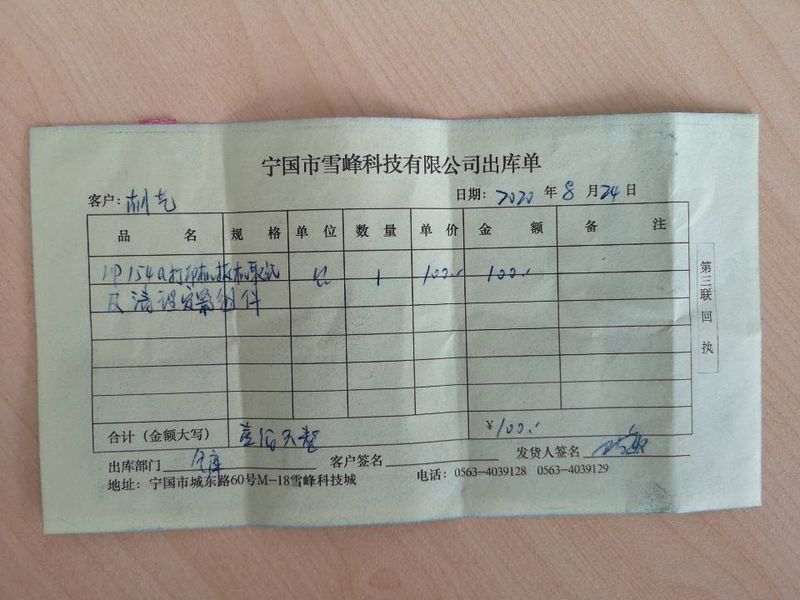 宁国市雪峰科技有限公司出库单
客户: 日期: 2020 年 8 月 24 日
品 名 规 格 单 位 数 量 单 价 金 额 备 注
HP 154a打印机 1 100.- 100.-
及清
第三联 回执
合计（金额大写） 壹佰元整 ¥100.-
出库部门 仓库 客户签名 发货人签名
地址: 宁国市城东路60号M-18雪峰科技城 电话: 0563-4039128 0563-4039129